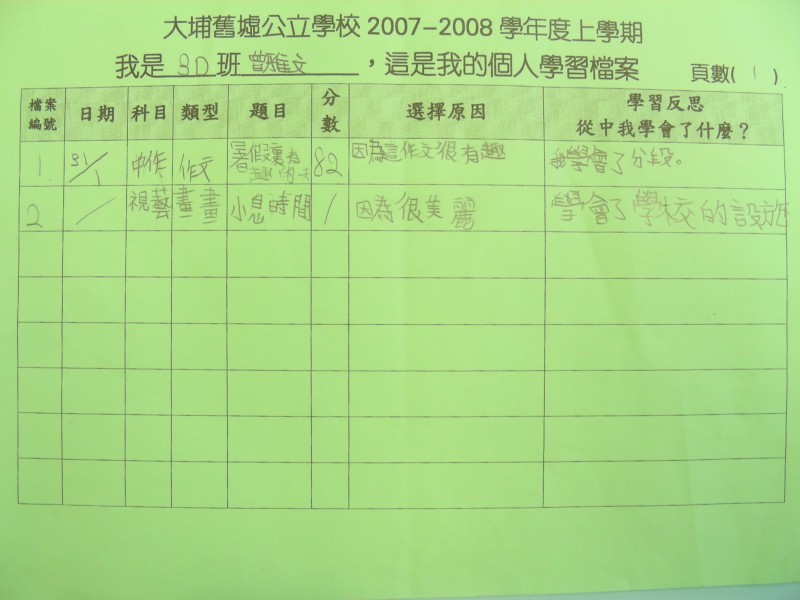 大埔舊墟公立學校 2007-2008 學年度上學期
我是 3D 班 曾雅文 ，這是我的個人學習檔案 頁數( 1 )
檔案編號 日期 科目 類型 題目 分數 選擇原因 學習反思 從中我學會了什麼？
1 31/1 中作 作文 暑假裏有趣的一天 82 因為這作文很有趣 我學會了分段。
2 / 視藝 畫畫 小息時間 / 因為很美麗 學會了學校的設施